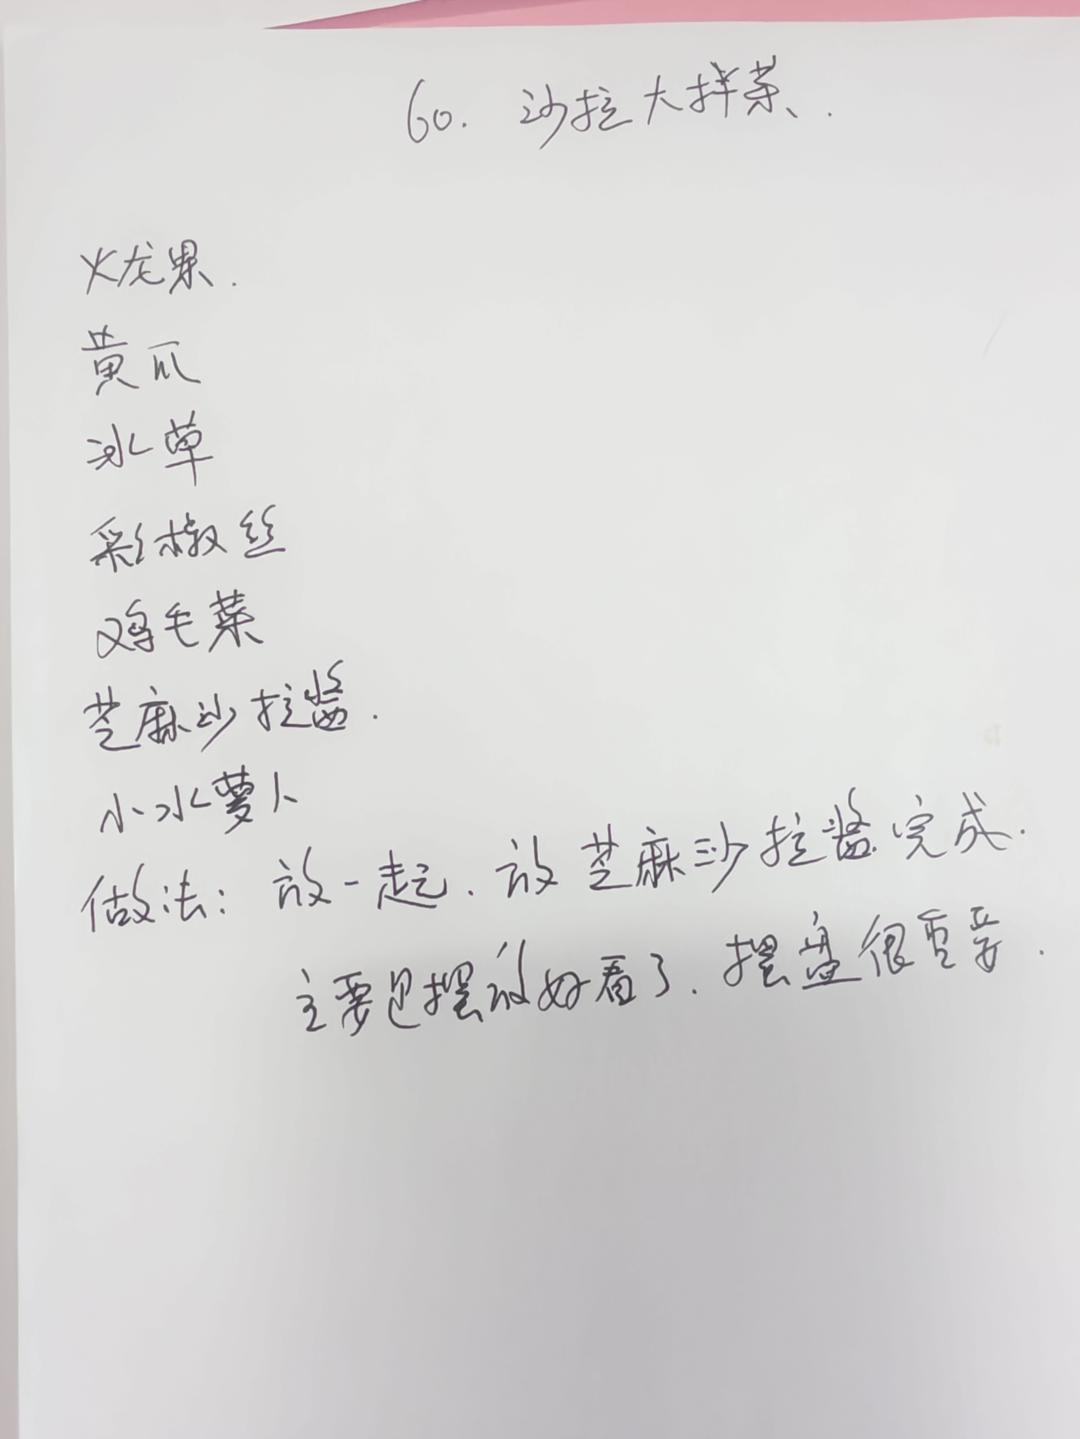 60. 沙拉大拌菜.
火龙果.
黄瓜
冰草
彩椒丝
鸡毛菜
芝麻沙拉酱.
小水萝卜
做法: 放一起. 放芝麻沙拉酱完成.
主要是摆放好看了. 摆盘很重要.